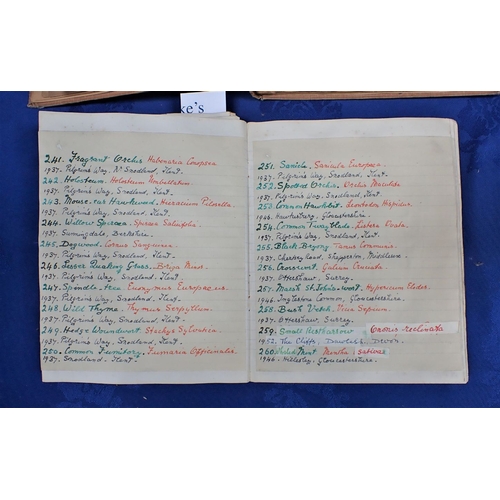 ke's
241. Fragrant Orchis Habenaria Conopsea
1937. Pilgrim's Way, Nr Snodland, Kent.
242. Holosteum. Holosteum Umbellatum.
1937. Pilgrim's Way, Snodland, Kent.
243. Mouse-ear Hawkweed. Hieracium Pilosella.
1937. Pilgrim's Way, Snodland, Kent.
244. Willow Spiraea. Spiraea Salicifolia.
1937. Sunningdale, Berkshire.
245. Dogwood. Cornus Sanguinea.
1937. Pilgrim's Way, Snodland, Kent.
246. Lesser Quaking Grass. Briza Minor.
1937. Pilgrim's Way, Snodland, Kent.
247. Spindle-tree Euonymus Europaeus.
1937. Pilgrim's Way, Snodland, Kent.
248. Wild Thyme. Thymus Serpyllum.
1937. Pilgrim's Way, Snodland, Kent.
249. Hedge Woundwort. Stachys Sylvatica.
1937. Pilgrim's Way, Snodland, Kent.
250. Common Fumitory. Fumaria Officinalis.
1937. Snodland, Kent.
251. Sanicle. Sanicula Europaea.
1937. Pilgrim's Way, Snodland, Kent.
252. Spotted Orchis. Orchis Maculata
1937. Pilgrim's Way, Snodland, Kent.
253. Common Hawkbit. Leontodon Hispidus
1946. Hawkesbury, Gloucestershire.
254. Common Twayblade. Listera Ovata.
1937. Pilgrim's Way, Snodland, Kent.
255. Black Bryony Tamus Communis.
1937. Chertsey Lane, Shepperton, Middlesex.
256. Crosswort. Galium Cruciata.
1937. Ottershaw, Surrey.
257. Marsh St. John's-wort. Hypericum Elodes.
1946. Inglestone Common, Gloucestershire.
258. Bush Vetch. Vicia Sepium.
1937. Ottershaw, Surrey.
259. Small Restharrow Ononis reclinata
1952. The Cliffs, Dawlish, Devon.
260. Mint Mentha sativa
1946. Hillesley, Gloucestershire.